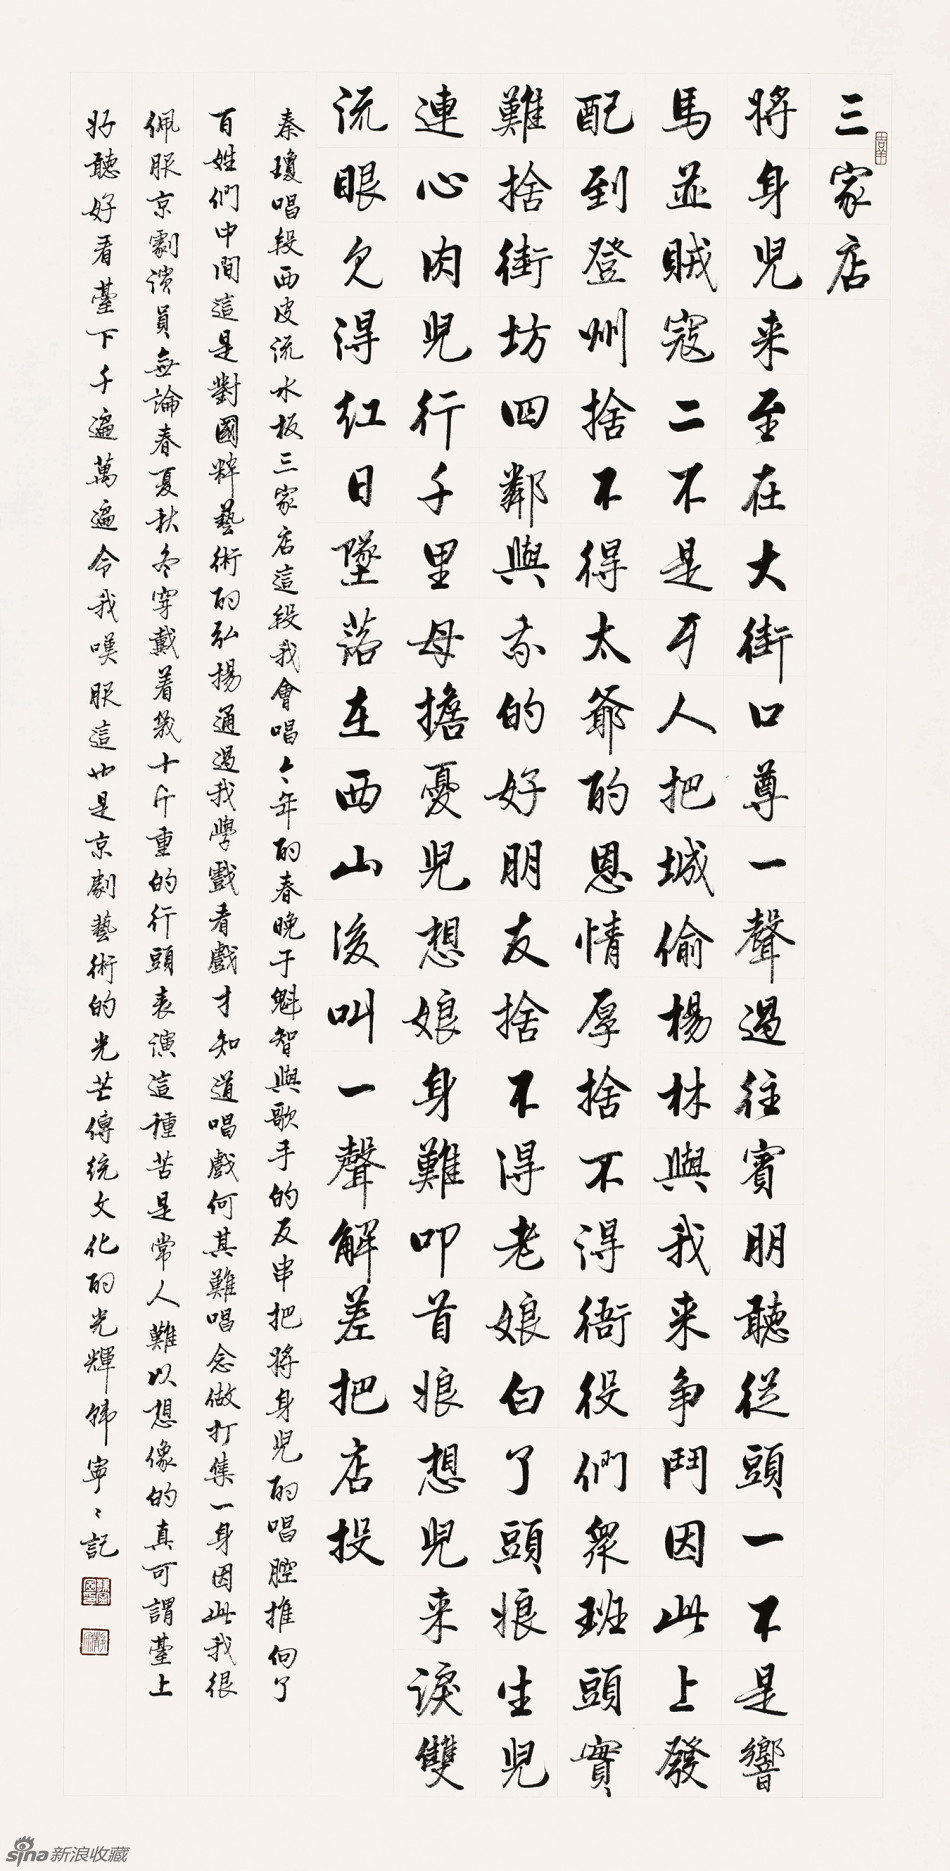 三家店
將身兒来至在大街口尊一聲過往賓朋聽從頭一不是響
馬並賊寇二不是歹人把城偷楊林與我来争鬥因此上發
配到登州捨不得太爺的恩情厚捨不得衙役們衆班頭實
難捨街坊四鄰與我的好朋友捨不得老娘白了頭娘生兒
連心肉兒行千里母擔憂兒想娘身難叩首娘想兒来淚雙
流眼見得红日墜落在西山後叫一聲解差把店投
秦瓊唱段西皮流水板三家店這段我會唱今年的春晚于魁智與歌手的反串把將身兒的唱腔推向了
百姓們中間這是對國粹藝術的弘揚通過我學戲看戲才知道唱戲何其難唱念做打集一身因此我很
佩服京劇演員無論春夏秋冬穿戴着幾十斤重的行頭表演這種苦是常人難以想像的真可謂臺上
好聽好看臺下千遍萬遍令我嘆服這也是京劇藝術的光芒傳統文化的光輝韩寧寧記
sina新浪收藏